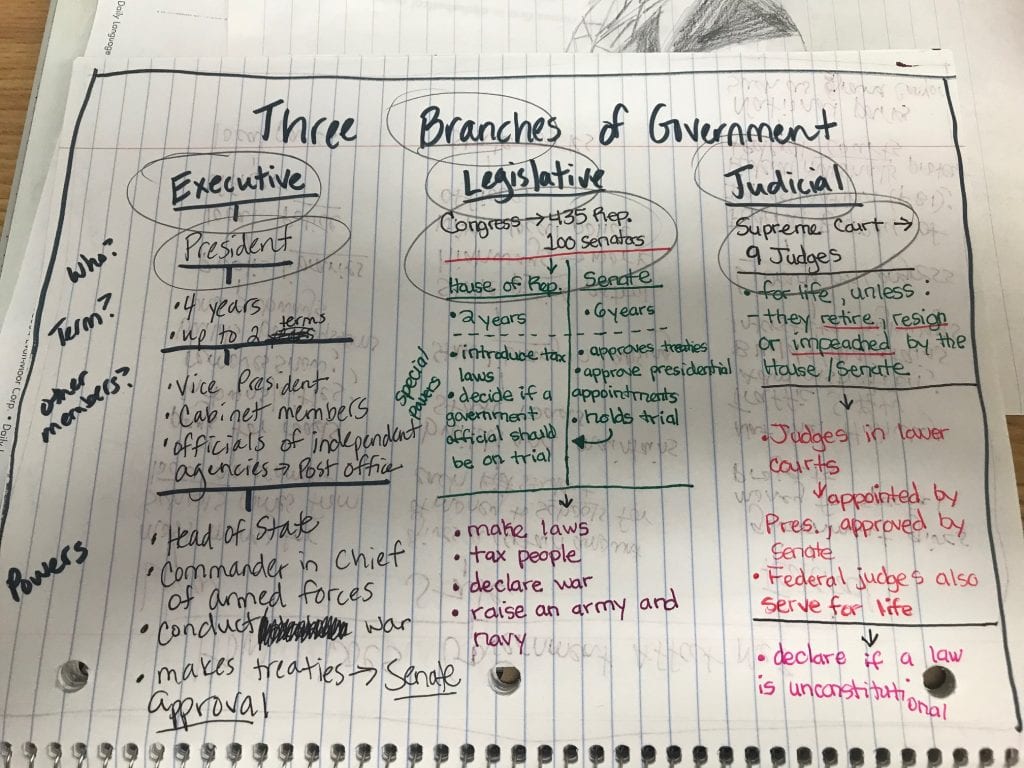 Daily Language
Three Branches of Government
Executive
President
Who?
Term?
• 4 years
• up to 2 terms
other
members?
• Vice President
• Cabinet members
• officials of independent
agencies → Post office
Powers
• Head of State
• Commander in Chief
of armed forces
• conduct war
• makes treaties → Senate
approval
Legislative
Congress → 435 Rep.
100 senators
House of Rep.
• 2 years
Special
Powers
• introduce tax
laws
• decide if a
government
official should
be on trial
Senate
• 6 years
• approves treaties
• approve presidential
appointments
• holds trial
• make laws
• tax people
• declare war
• raise an army and
navy
Judicial
Supreme Court →
9 Judges
• for life, unless:
- they retire, resign
or impeached by the
House/Senate.
• Judges in lower
courts
↳ appointed by
Pres., approved by
Senate
• Federal judges also
serve for life
• declare if a law
is unconstitutional